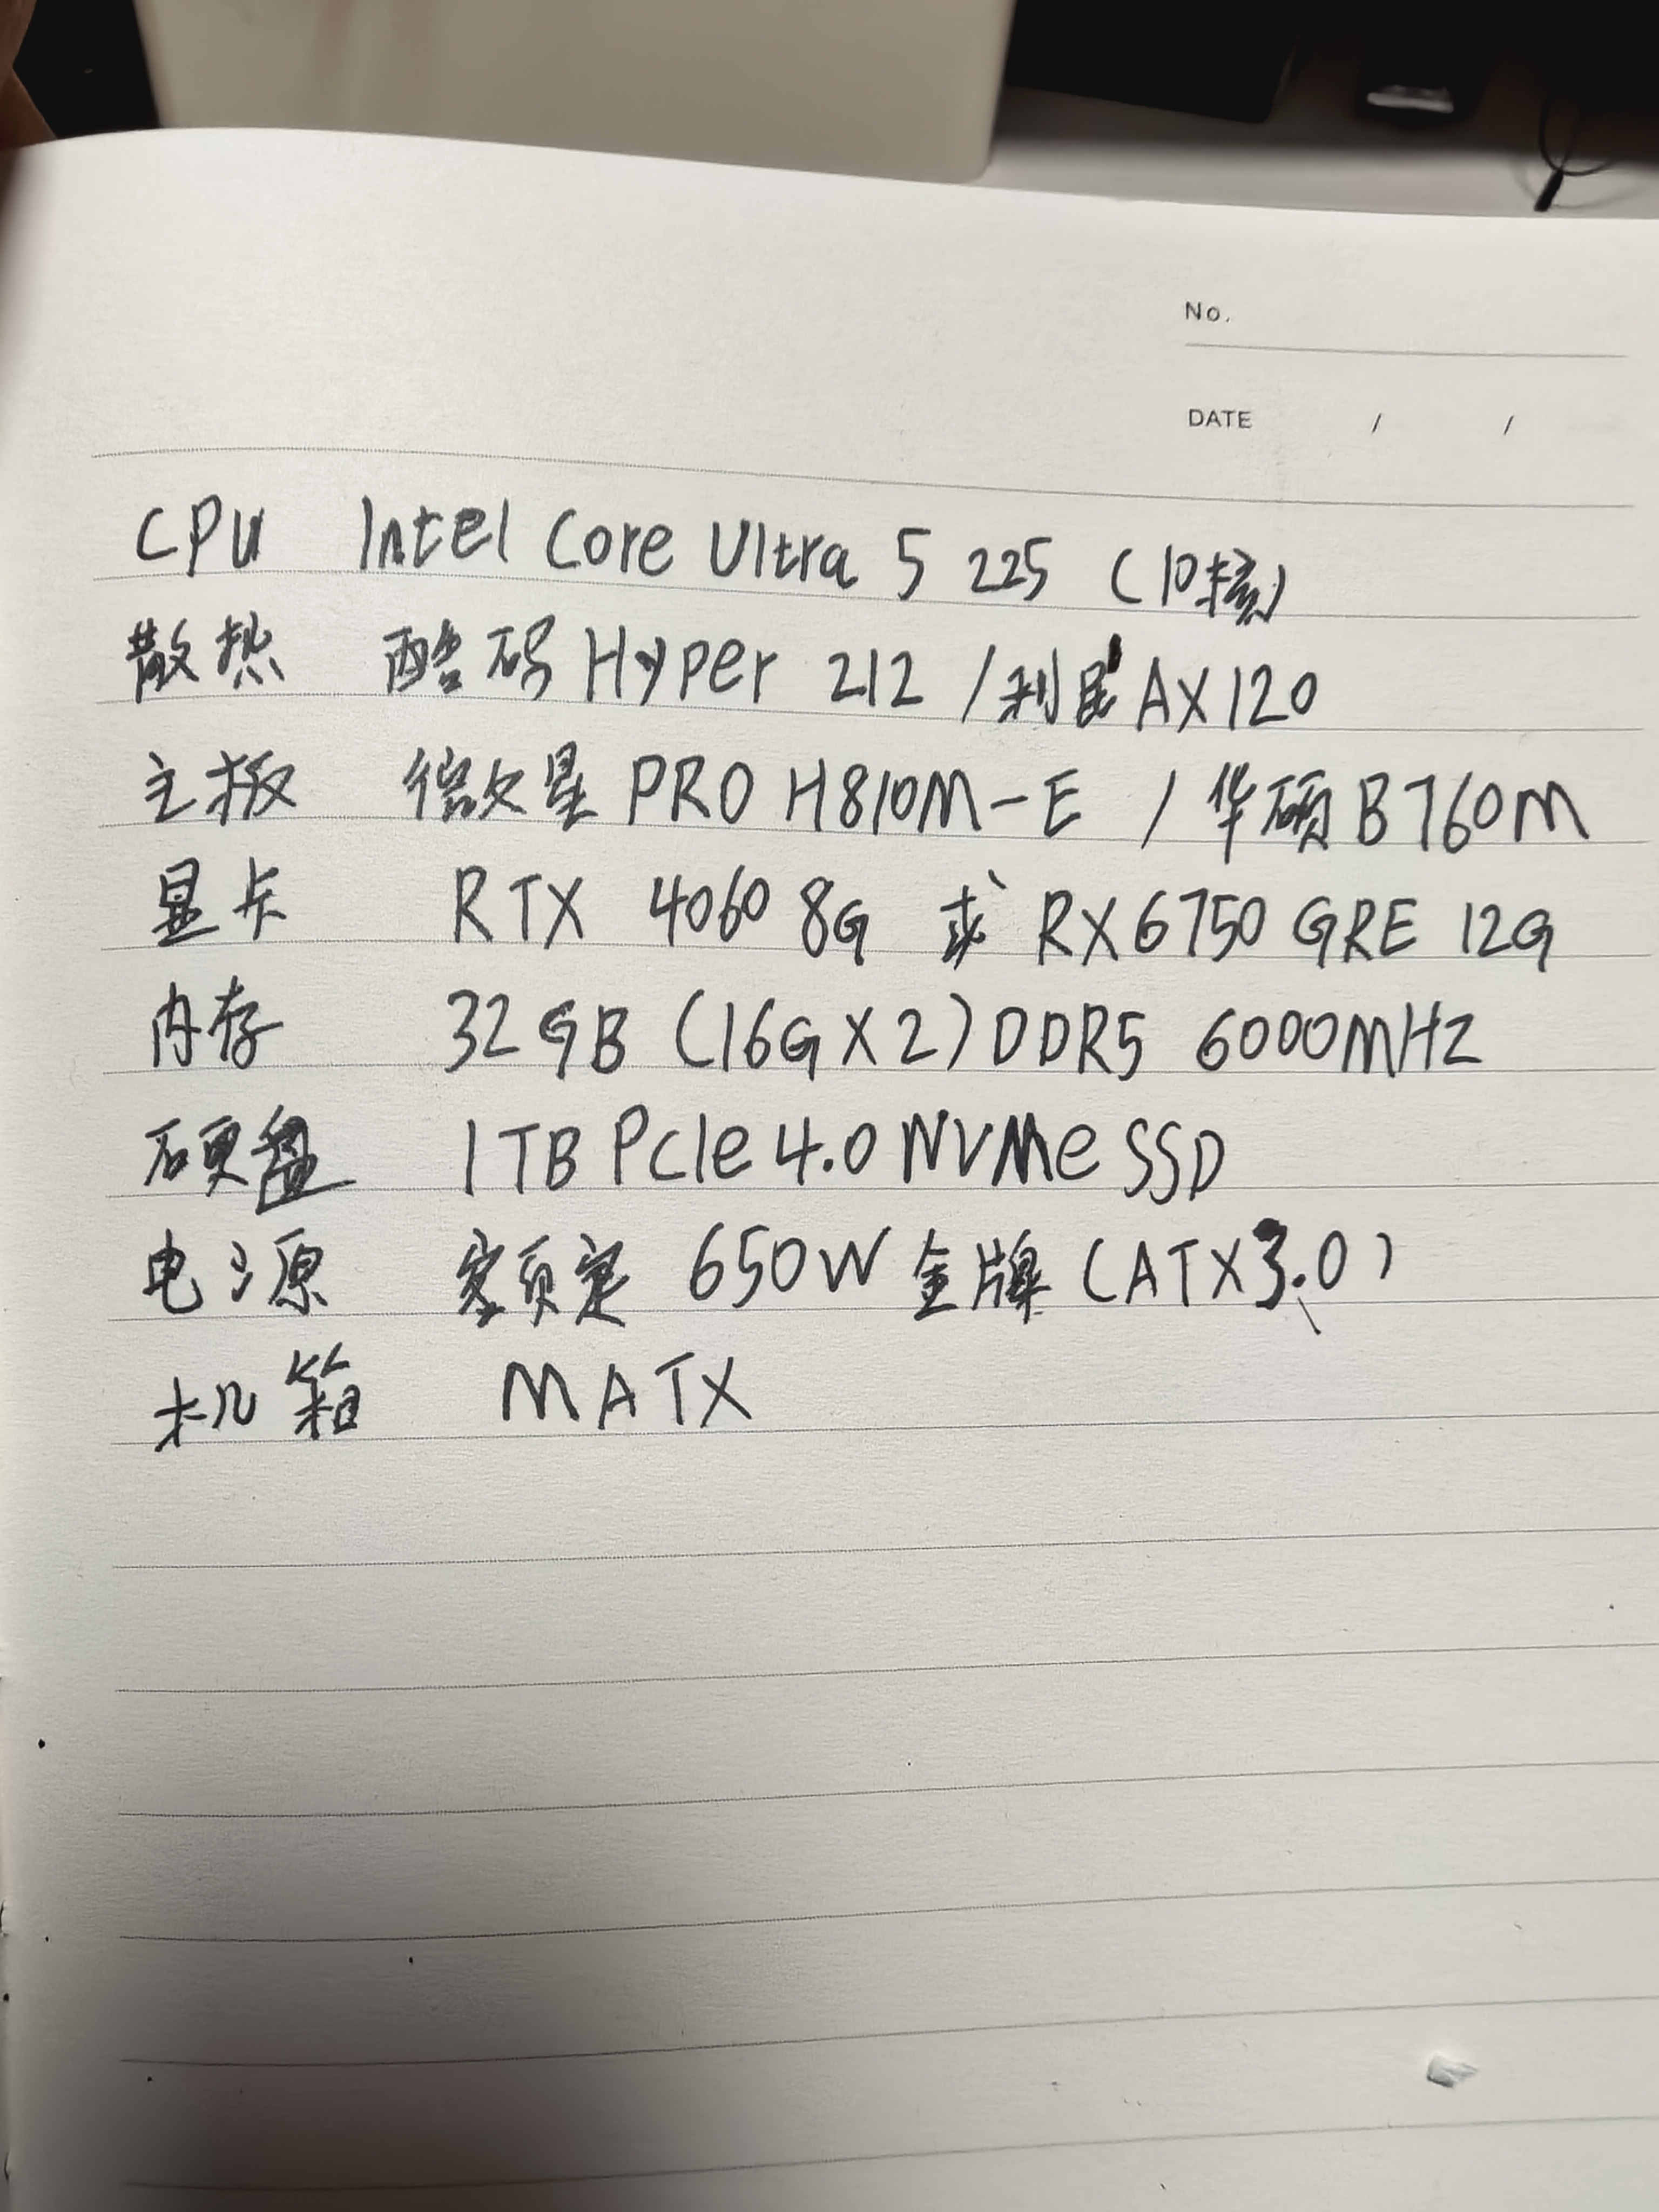 No.
DATE / /
CPU Intel Core Ultra 5 225 (10核)
散热 酷码 Hyper 212 /利民 AX120
主板 微星 PRO H810M-E / 华硕 B760M
显卡 RTX 4060 8G 或 RX6750 GRE 12G
内存 32GB (16G×2) DDR5 6000MHz
硬盘 1TB PCle 4.0 NVMe SSD
电源 额定 650W 金牌 (ATX3.0)
机箱 MATX